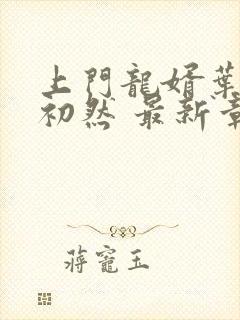 上門龍婿葉
初然 最新章
蔣寵玉